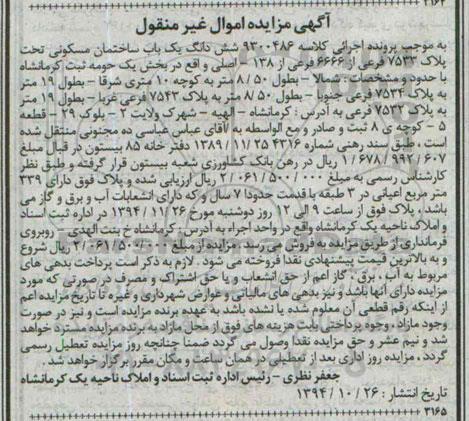 آگهی مزایده اموال غیر منقول
به موجب پرونده اجرائی کلاسه ۹۳۰۰۴۸۶ شش دانگ یک باب ساختمان مسکونی تحت
پلاک ۷۵۳۳ فرعی از ۶۶۶۶ فرعی از ۱۳۸ - اصلی واقع در بخش یک حومه ثبت کرمانشاه
با حدود و مشخصات : شمالا - بطول ۵۰ / ۸ متر به کوچه ۱۰ متری شرقا - بطول ۱۹ متر
به پلاک ۷۵۳۴ فرعی جنوبا - بطول ۵۰ / ۸ متر به پلاک ۷۵۴۳ فرعی غربا - بطول ۱۹ متر
به پلاک ۷۵۳۲ فرعی به آدرس : کرمانشاه - الهیه - شهرک ولایت ۲ - بلوک ۲۹ - قطعه
۵ - کوچه ی ۸ ثبت و صادر و مع الواسطه به آقای عباس عباسی ده مجنونی منتقل شده
است ، طبق سند رهنی شماره ۴۳۱۶ ۲۵ / ۱۱ / ۱۳۸۹ دفتر خانه ۸۵ بیستون در قبال مبلغ
۶۰۷ / ۹۹۲ / ۶۷۸ / ۱ ریال در رهن بانک کشاورزی شعبه بیستون قرار گرفته و طبق نظر
کارشناس رسمی به مبلغ ۰۰۰ / ۵۰۰ / ۰۶۱ / ۲ ریال ارزیابی شده و پلاک فوق دارای ۳۳۹
متر مربع اعیانی در ۳ طبقه با قدمت حدودا ۷ سال و که دارای انشعابات آب و برق و گاز می
باشد ، پلاک فوق از ساعت ۹ الی ۱۲ روز دوشنبه مورخ ۲۶ / ۱۱ / ۱۳۹۴ در اداره ثبت اسناد
و املاک ناحیه یک کرمانشاه واقع در واحد اجراء به آدرس : کرمانشاه خ بنت الهدی - روبروی
فرمانداری از طریق مزایده به فروش می رسد . مزایده از مبلغ ۰۰۰ / ۵۰۰ / ۰۶۱ / ۲ ریال شروع
و به بالاترین قیمت پیشنهادی نقدا فروخته می شود . لازم به ذکر است پرداخت بدهی های
مربوط به آب ، برق ، گاز اعم از حق انشعاب و یا حق اشتراک و مصرف در صورتی که مورد
مزایده دارای آنها باشد و نیز بدهی های مالیاتی و عوارض شهرداری و غیره تا تاریخ مزایده اعم
از اینکه رقم قطعی آن معلوم شده یا نشده باشد به عهده برنده مزایده است و نیز در صورت
وجود مازاد ، وجوه پرداختی بابت هزینه های فوق از محل مازاد به برنده مزایده مسترد خواهد
شد و نیم عشر و حق مزایده نقدا وصول می گردد ضمنا چنانچه روز مزایده تعطیل رسمی
گردد ، مزایده روز اداری بعد از تعطیلی در همان ساعت و مکان مقرر برگزار خواهد شد .
جعفر نظری - رئیس اداره ثبت اسناد و املاک ناحیه یک کرمانشاه
تاریخ انتشار : ۲۶ / ۱۰ / ۱۳۹۴
۳۱۶۵